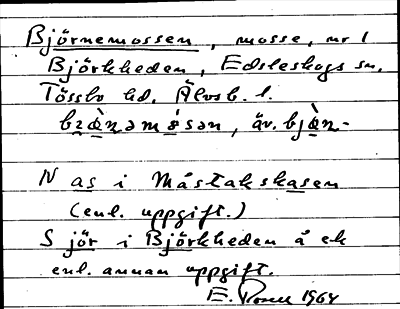 Björnemossen, mosse, nr 1
Björkheden, Edsleskogs sn,
Tössbo hd. Älvsb. l.
bræ̀nəmɷ́sən, äv. bjæ̀n-
N as i Måstakskasen
(enl. uppgift.)
S jör i Björkheden å ek
enl. annan uppgift.
E. 1964